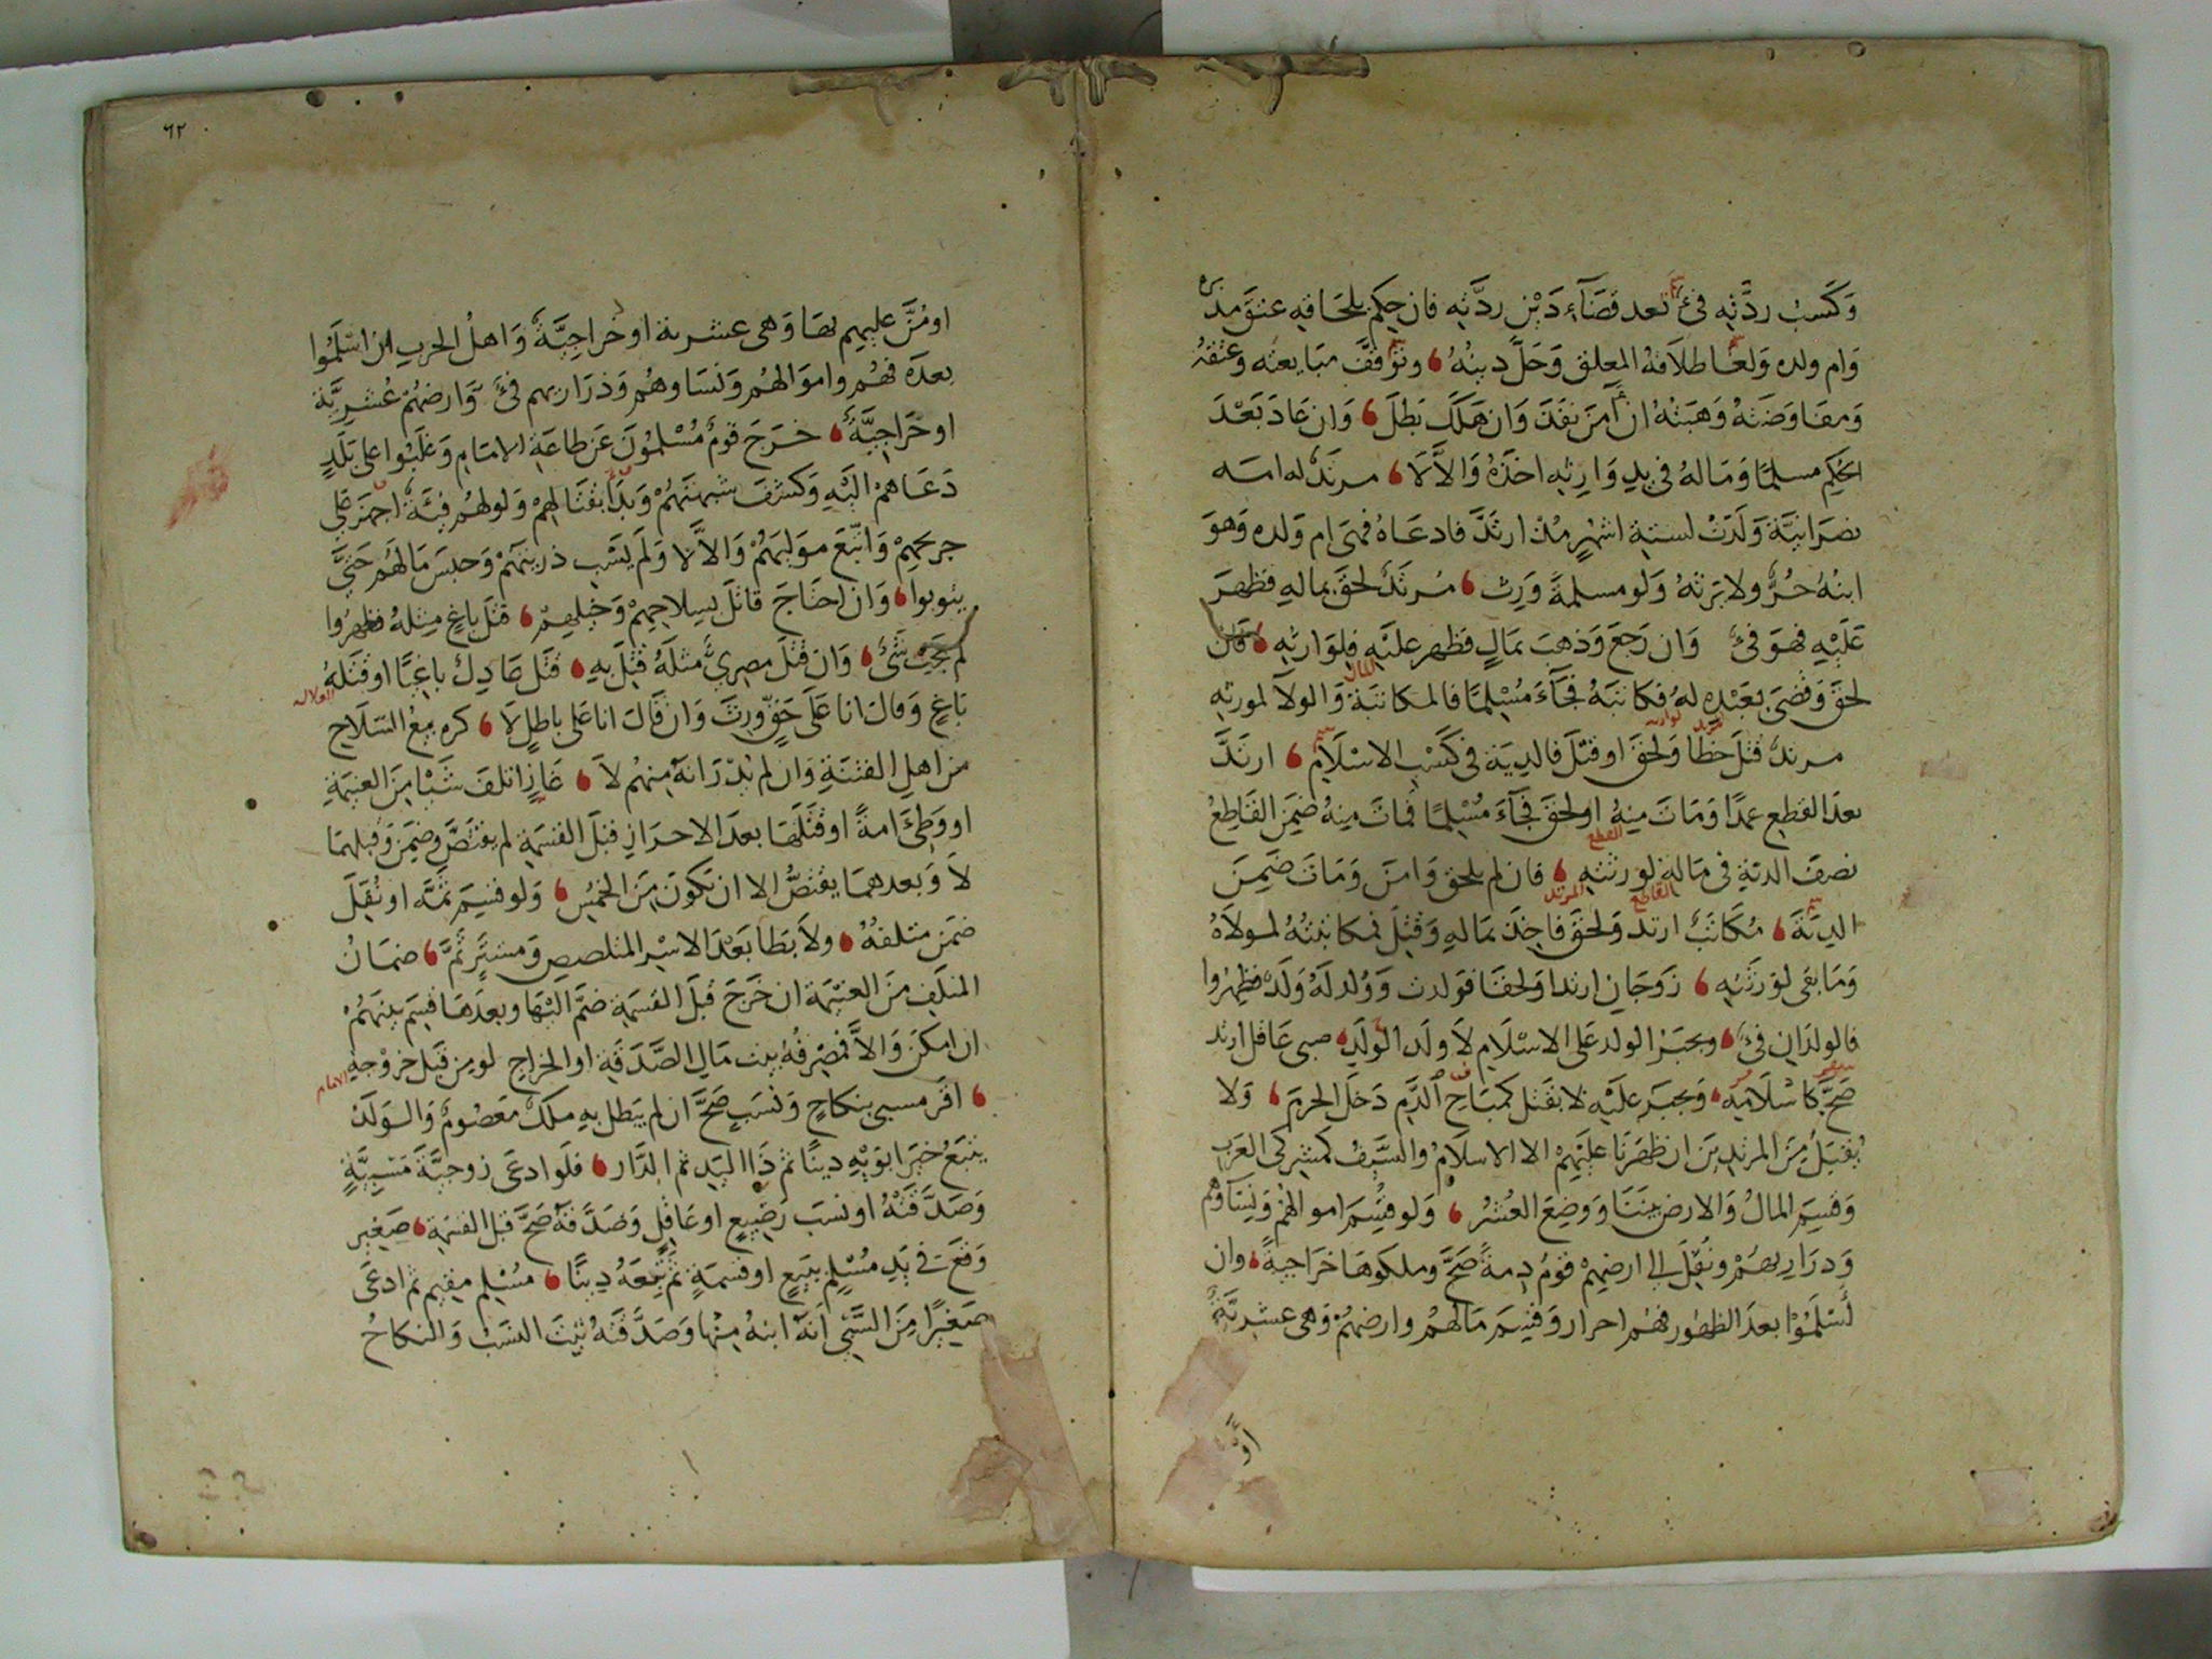 وَكَسْب ردَّته فئ بَعد قضَآءِ دَيْن ردَّته فان حكِم بلحَاقه عتقَ مدبره
وَام ولده وَلغَا طلاَقهُ المعلق وَحَلَّ دينُهُ وتَوَقفَّ مبَايعته وَعتقهُ
وَمفَاوضَتهُ وَهبَتهُ ان اَمنَ نفذَ وَان هَلكَ بَطلَ وَان عَادَ بَعْدَ
الحُكمِ مسلمًا وَمَالهُ في يدِ وَارِثه اخذَهُ وَالاَّ لاَ مرتدٌ له امَه
نصرَانيَّة وَلَدَتْ لستة اشهُرٍ مُذ ارتَدَّ فادعَاهُ فهىَ ام وَلده وَهوَ
ابنُهُ حُرٌّ ولا يَرثهُ وَلَو مسلمةً وَرِث مُرتَدٌ لحقَ بماله فظهرَ
عَلَيْهِ فهوَ فئ وَان رَجعَ وَذهبَ بمَالٍ فظهر علَيْه فلوَارثه فَان
لحقَ وَقضىَ بعَبْدِه لهُ فكاتبَهُ فجَآءَ مُسْلمًا فالمكاتبَة وَالولاَ لمورثه
مرتدٌّ قتلَ خطَا وَلحقَ اوقتلَ فالديَة في كَسْبِ الاسْلاَم ارتَدَّ
بعدَ القطع عمدًا وَمَاتَ منهُ اولحقَ فجَآءَ مُسْلمًا فماتَ منهُ ضمنَ القَاطعُ
نصفَ الديَة في مَاله لورثته فان لم يلحق وَامنَ وَمَاتَ ضَمِنَ
الديَة مُكَاتَبٌ ارتد وَلحقَ فاخذَ بمَاله وَقتلَ فمكاتبَتهُ لمولاَهُ
وَمَا بقى لورثَته زَوجَانِ ارتدا وَلحقَا فوَلدت وَوُلدَ لَهُ وَلَدٌ فظهرُوا
فالولدَانِ فئ ويجبَرُ الولد عَلى الاسْلاَم لاَ ولَد الوَلَدِ صبى عَاقل ارتد
صَحَّ كاسْلاَمه وَيجبَر عَليْه لا يقتل كمُبَاحِ الدَّم دَخلَ الحرمَ وَلا
يُقبَلُ مِنَ المرتدينَ ان ظهَرنَا عليَهِمْ الا الاسلاَمُ والسَّيفُ كمشركى العَرب
وَقسمَ المَالُ وَالارضُ بيننَا وَوضِعَ العُشْرُ وَلو قُسِّمَ اموالهُمْ وَنسَآؤهُم
وَذرَاريهُمْ ونُقلَ الى ارضهِمْ قومُ ذِمةً صَحَّ وملكوهَا خَرَاجيةً وان
اَسْلَمُوْا بعدَ الظهُور فهُم احرار وَقسمَ مَالهُمْ وارضهُمْ وَهى عشريَّةٌ
او
٦٢
اومُنَّ عليهم بهَا وَهى عشرية او خراجيَّةٌ وَاهلُ الحرب ان اسْلَمُوا
بعدَهُ فهُم واموَالهُم وَنسَاوهُم وَذرَاريهم فئ وَّارضهُمْ عُشريَّة
او خَرَاجيَّةٌ خرَجَ قومٌ مُسْلمُونَ عَن طاعَةِ الامَام وَغلَبُوا على بَلَدٍ
دَعَاهمْ الَيْه وَكشفَ شبهتَهُمْ وَبدَا بقتَالهِمْ وَلولهُم فئَةٌ اجهزَ على
جريحهِمْ وَاتّبعَ مولّيَهُمْ وَالاَّ لا وَلَم يَسْب ذريتَهُمْ وَحبسَ مَالَهُم حتىَّ
يتوبوا وَان احتَاجَ قاتلَ بسِلاحهِمْ وَخيلهمْ قتلَ باغٍ مثلهُ فظهرُوا
لم يجبْ شئ وَان قتلَ مصريٌّ مثلَهُ قُتلَ بهِ قتلَ عَادِلٌ باغيًا اوقتلَهُ
باغٍ وَقالَ انا عَلى حَقٍّ ورثَ وَان قَالَ انا على باطلٍ لاَ كره بيعُ السّلاَح
من اهلِ الفتنَةِ وَان لم يُدْرَ انهُ منهُم لاَ غَازٍ اتلفَ شَيْا مِنَ الغنيمَةِ
اووَطئَ امةً اوقتَلَهَا بعدَ الاحرَاز قبلَ القسمَةِ لم يقتَصَّ وضمِنَ وَقبلهمَا
لاَ وَبعدهمَا يقتصُّ الا ان تكونَ مِنَ الخمُسِ وَلو قسِمَ ثمَّه اونُقلَ
ضمنَ متلفهُ ولاَ يَطأ بَعْدَ الاسْر المتلصص وَمشتَرٍ ثمَّ ضمَانُ
المتلَفِ مِنَ الغنيمَة ان خَرَجَ قبلَ القسمَة ضمَّ الَيْهَا وبعدَهَا قسِم بينَهُمْ
ان امكنَ وَالاَّ فمصْرفُهُ بيت مَال الصَّدَقة او الخراج لو من قبَل خروْجه الامام
اقَر مسبى بنكاحٍ وَنسَبٍ صَحَّ ان لم يَبطل به ملكٌ معصُومٌ وَالوَلَدُ
يتبَعُ خيرَ ابوَيْه دينًا ثم ذَا اليَدِ ثم الدَّار فلَوا دعَى زوجيَّةَ مَسْبيَّةٍ
وَصَدَّقَتْهُ اونسَب رَضيعٍ اوعَاقلٍ وَصَدَّقهُ صَحَّ قبل القسمَة صَغير
وَقعَ في يَدِ مُسْلِمٍ ببَيعٍ اوقسمَةٍ ثم تبعَهُ دينًا مُسْلم مقيم ثم ادعَى
صَغيرًا مِنَ السَّبْى انهُ ابنهُ منْها وَصَدَّقتهُ ثبتَ النسَبُ وَالنكاحُ